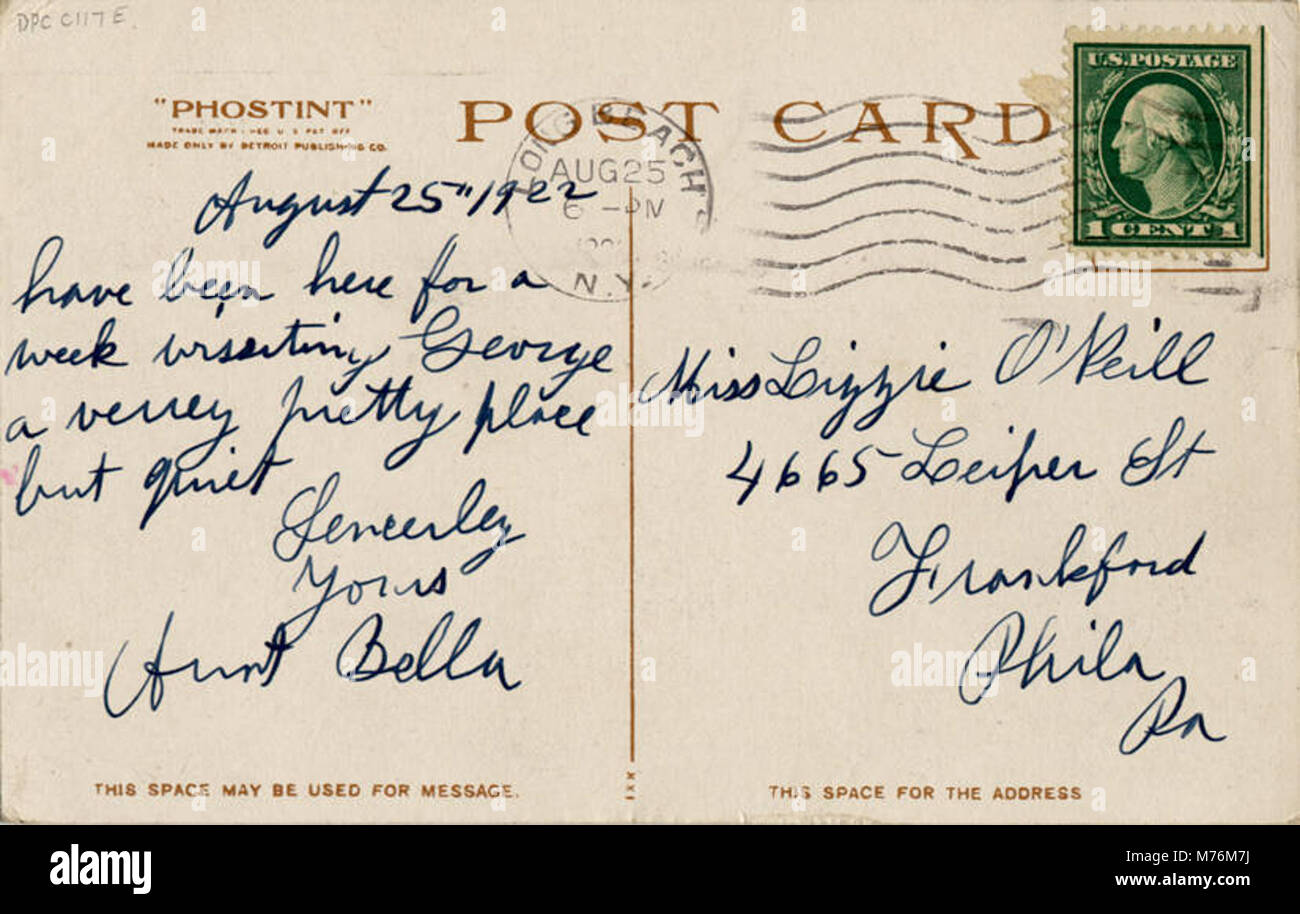 DPC C117E.
"PHOSTINT"
TRADE MARK · REG U S PAT OFF
MADE ONLY BY DETROIT PUBLISHING CO.
POST CARD
U.S. POSTAGE
1 CENT 1
LONG BEACH
AUG 25
6 - PM
N.Y.
August 25" 1922
have been here for a
week vissiting George
a verrey pretty place
but quiet
Sencerley
Yours
Aunt Bella
Miss Lizzie O'Neill
4665 Leiper St
Frankford
Phila
Pa
THIS SPACE MAY BE USED FOR MESSAGE.
XXI
THIS SPACE FOR THE ADDRESS
alamy
alamy
alamy
a
a
a
a
alamy
Image ID: M76M7J
www.alamy.com